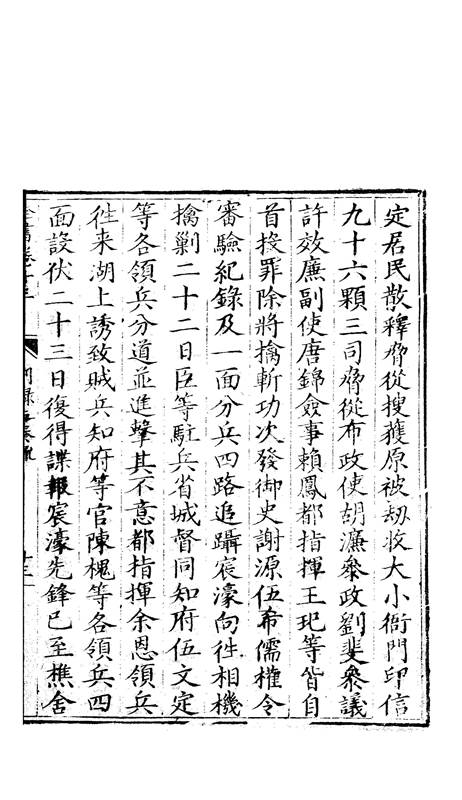 定居民散釋脅從搜獲原被刼收大小衙門印信
九十六顆三司脅從布政使胡濂叅政劉斐叅議
許效廉副使唐錦僉事賴鳳都指揮王玘等皆自
首投罪除將擒斬功次發御史謝源伍希儒權令
審驗紀錄及一面分兵四路追躡宸濠向徃相機
擒剿二十二日臣等駐兵省城督同知府伍文定
等各領兵分道並進擊其不意都指揮余恩領兵
徃来湖上誘致賊兵知府等官陳槐等各領兵四
面設伏二十三日復得諜報宸濠先鋒已至樵舍